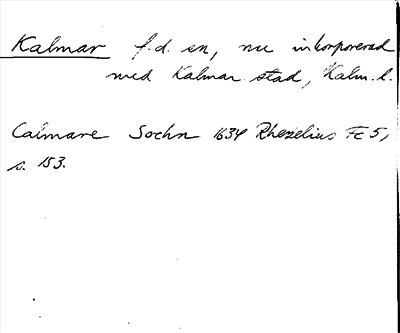 Kalmar f.d. sn, nu inkorporerad
med Kalmar stad, Kalm. l.
Calmare Sochn 1634 Rhezelius Fc 5,
s. 153.